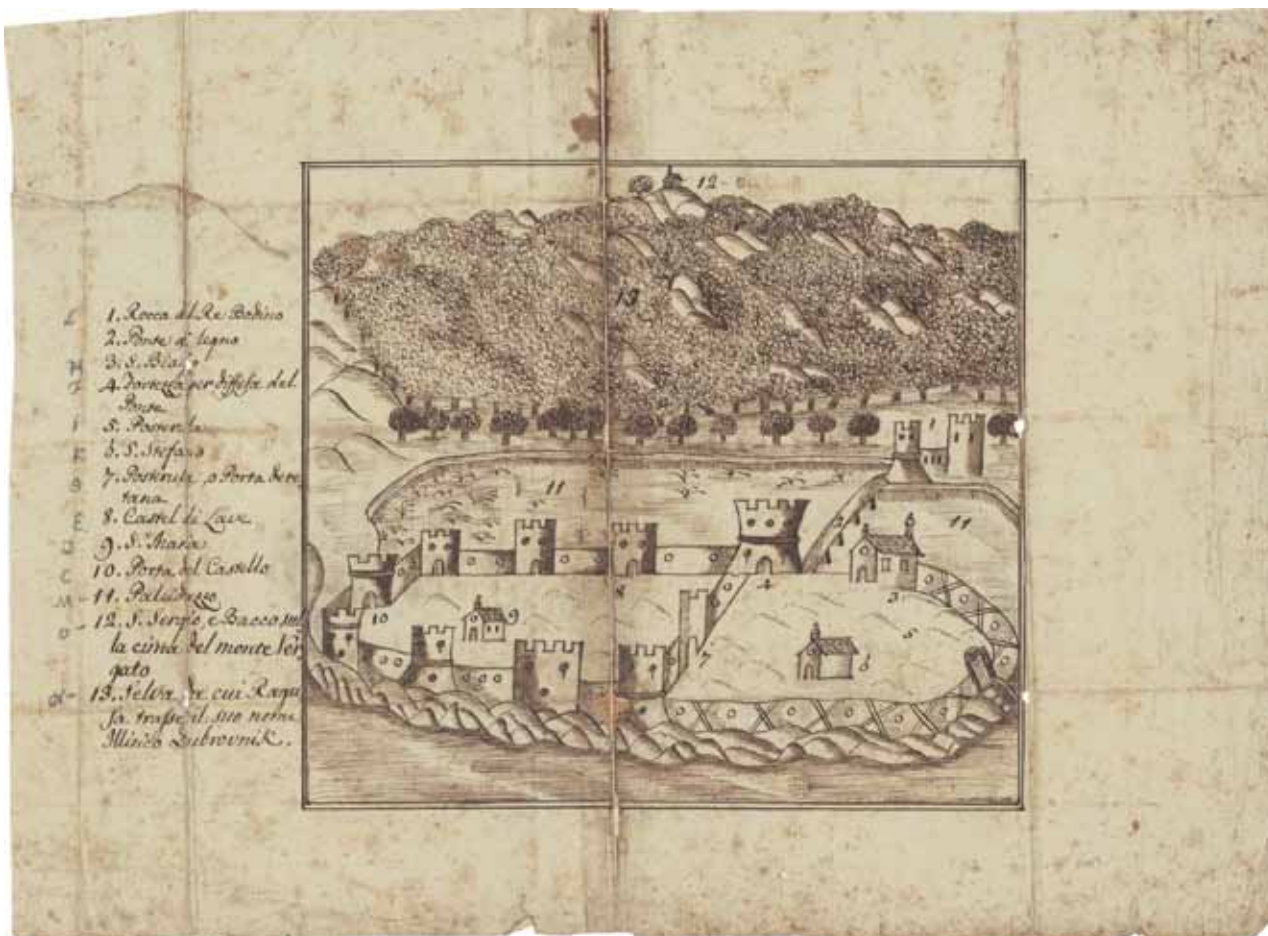 1. Rocca del Re Bodino
2. Ponte di legno
3. S. Biagio
4. Fortezza per diffesa del
Ponte
5.
6. S. Stefano
7. Posterula, o Porta
8. Castel di Lave
9. S. Maria
10. Porta del Castello
11.
12. S. Sergio, e Bacco sul
la cima del monte Ver
gato
13. Selva da cui Ragu
sa trasse il suo nome
Illirico Dubrovnik.
12
13
1
11
11
2
4
8
3
10
9
7
6
5